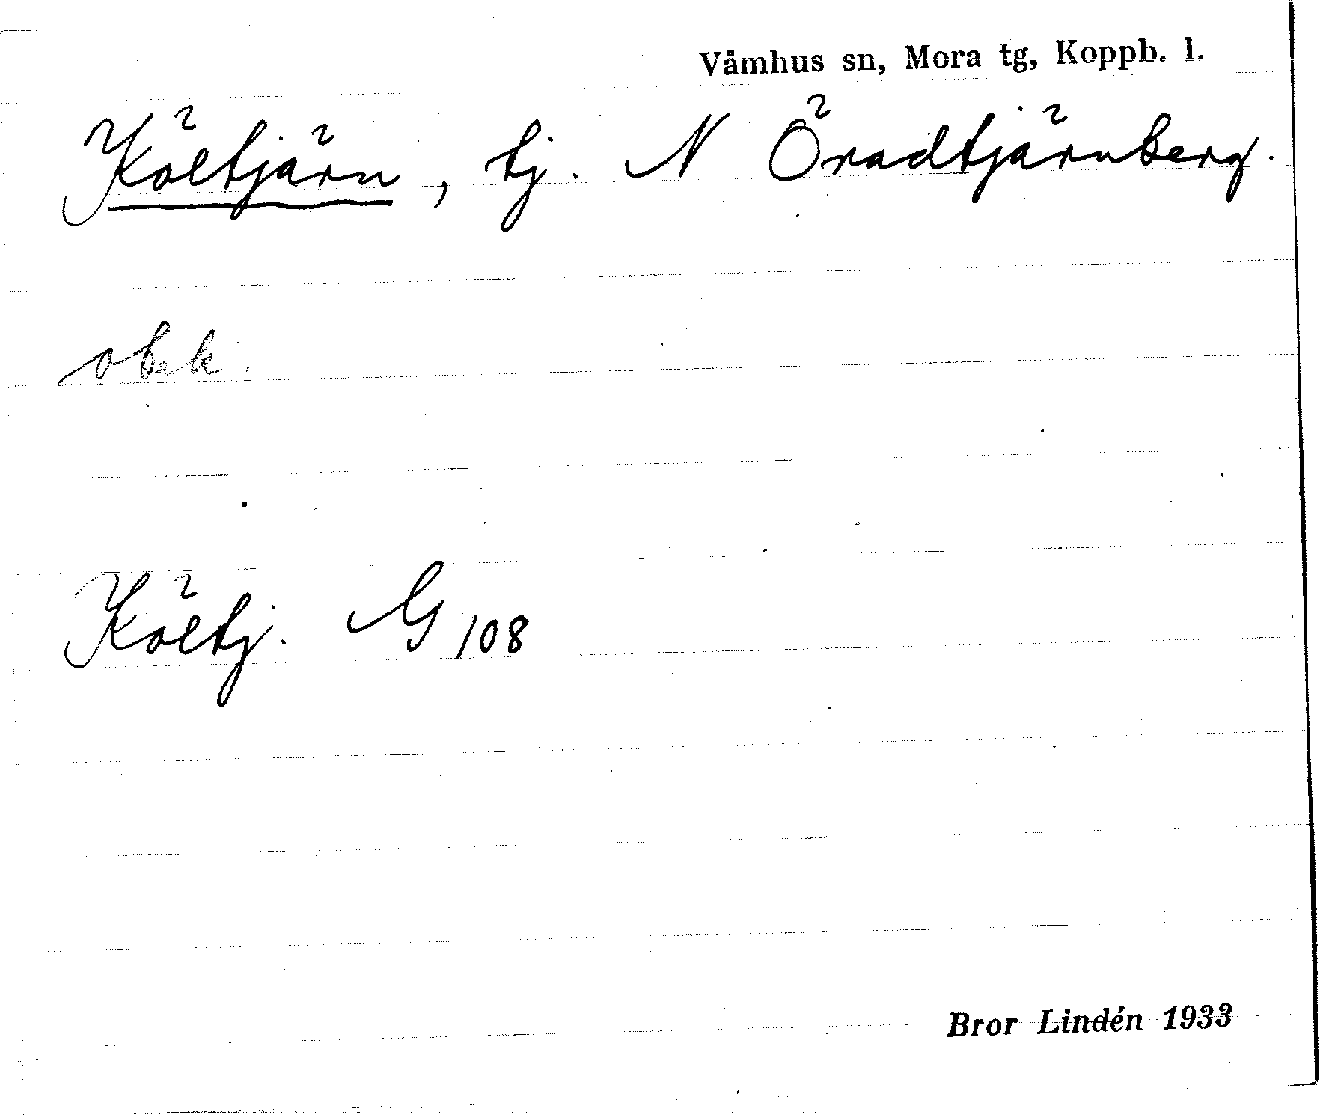 Våmhus sn, Mora tg, Koppb. l.
Költjärn, tj. N Öradtjärnberg.
obek.
Költj. G 108
Bror Lindén 1933